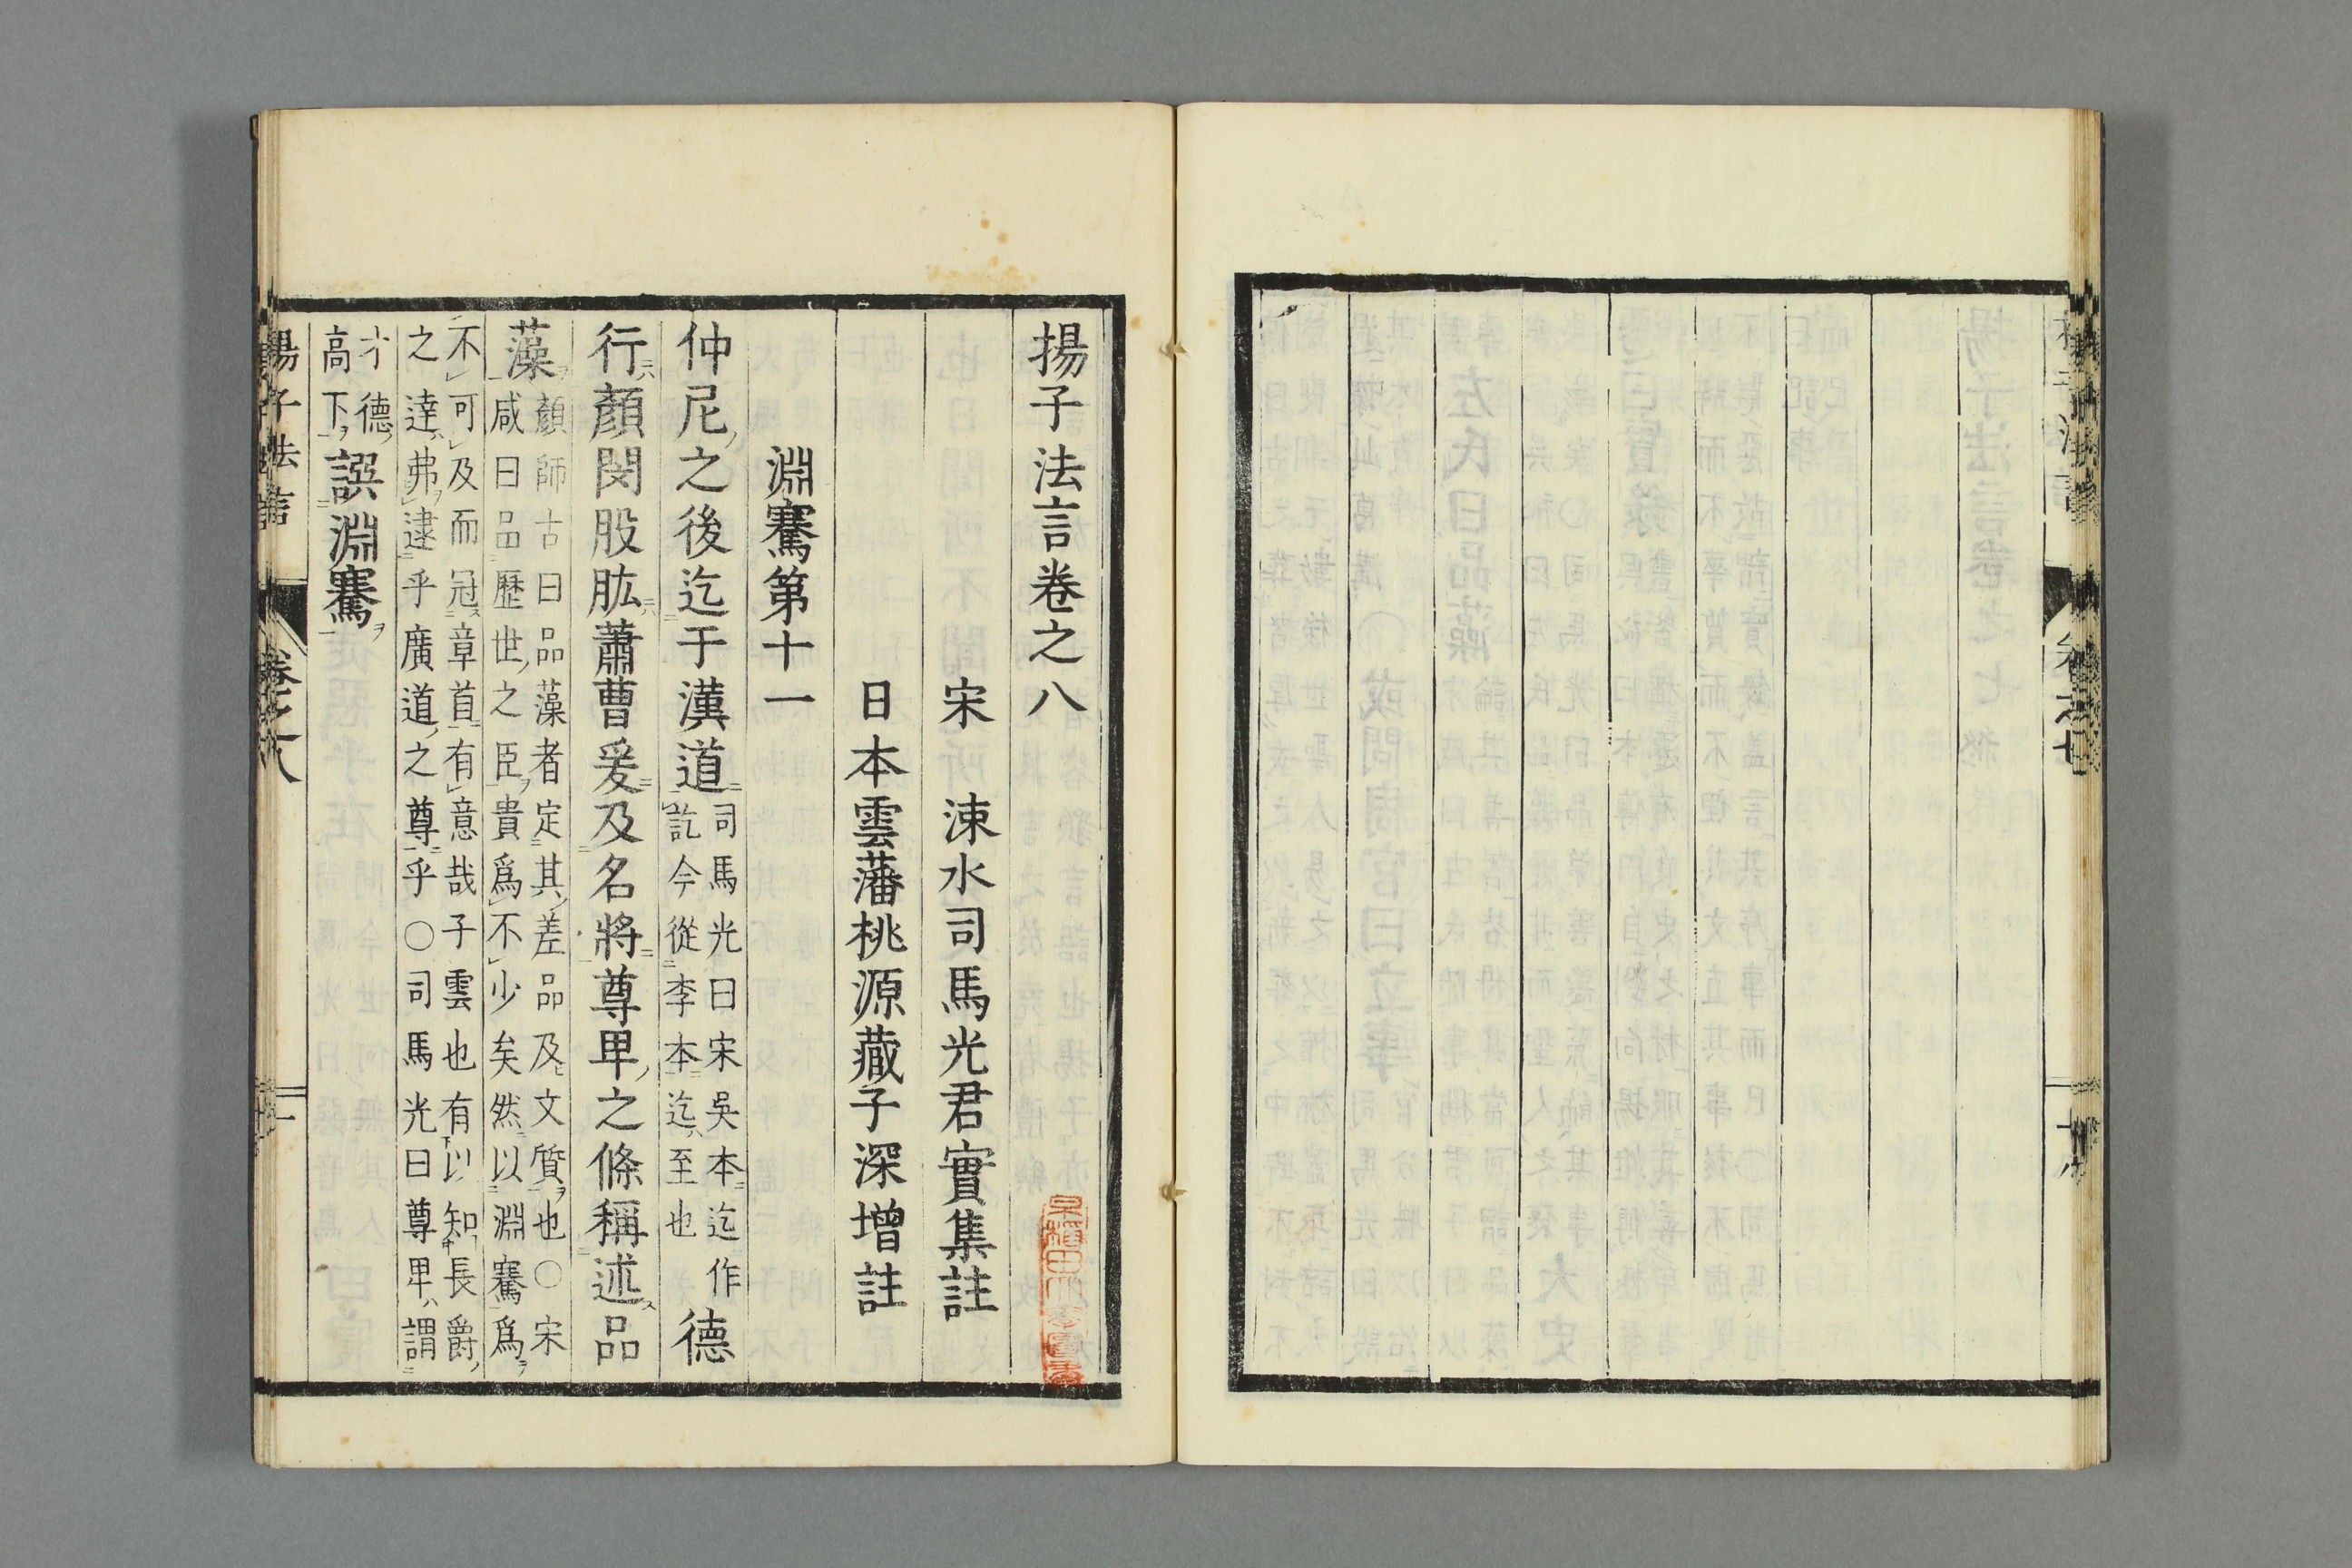 揚子法言卷之八
宋　涑水司馬光君實集註
日本雲藩桃源藏子深增註
淵騫第十一
仲尼ノ之後迄于漢道司馬光曰宋吳本迄作訖今從李本迄至也德
行顏閔股肱蕭曹爰及名將尊卑ノ之條稱述品
藻顏師古曰品藻者定其差品及文質也○宋咸曰品歷世之臣貴爲不少矣然以淵騫爲
不可及而冠章首有意哉子雲也有以知長爵之達弗逮乎廣道之尊乎○司馬光曰尊卑謂
才德高下譔淵騫
揚子法言　卷之八　一